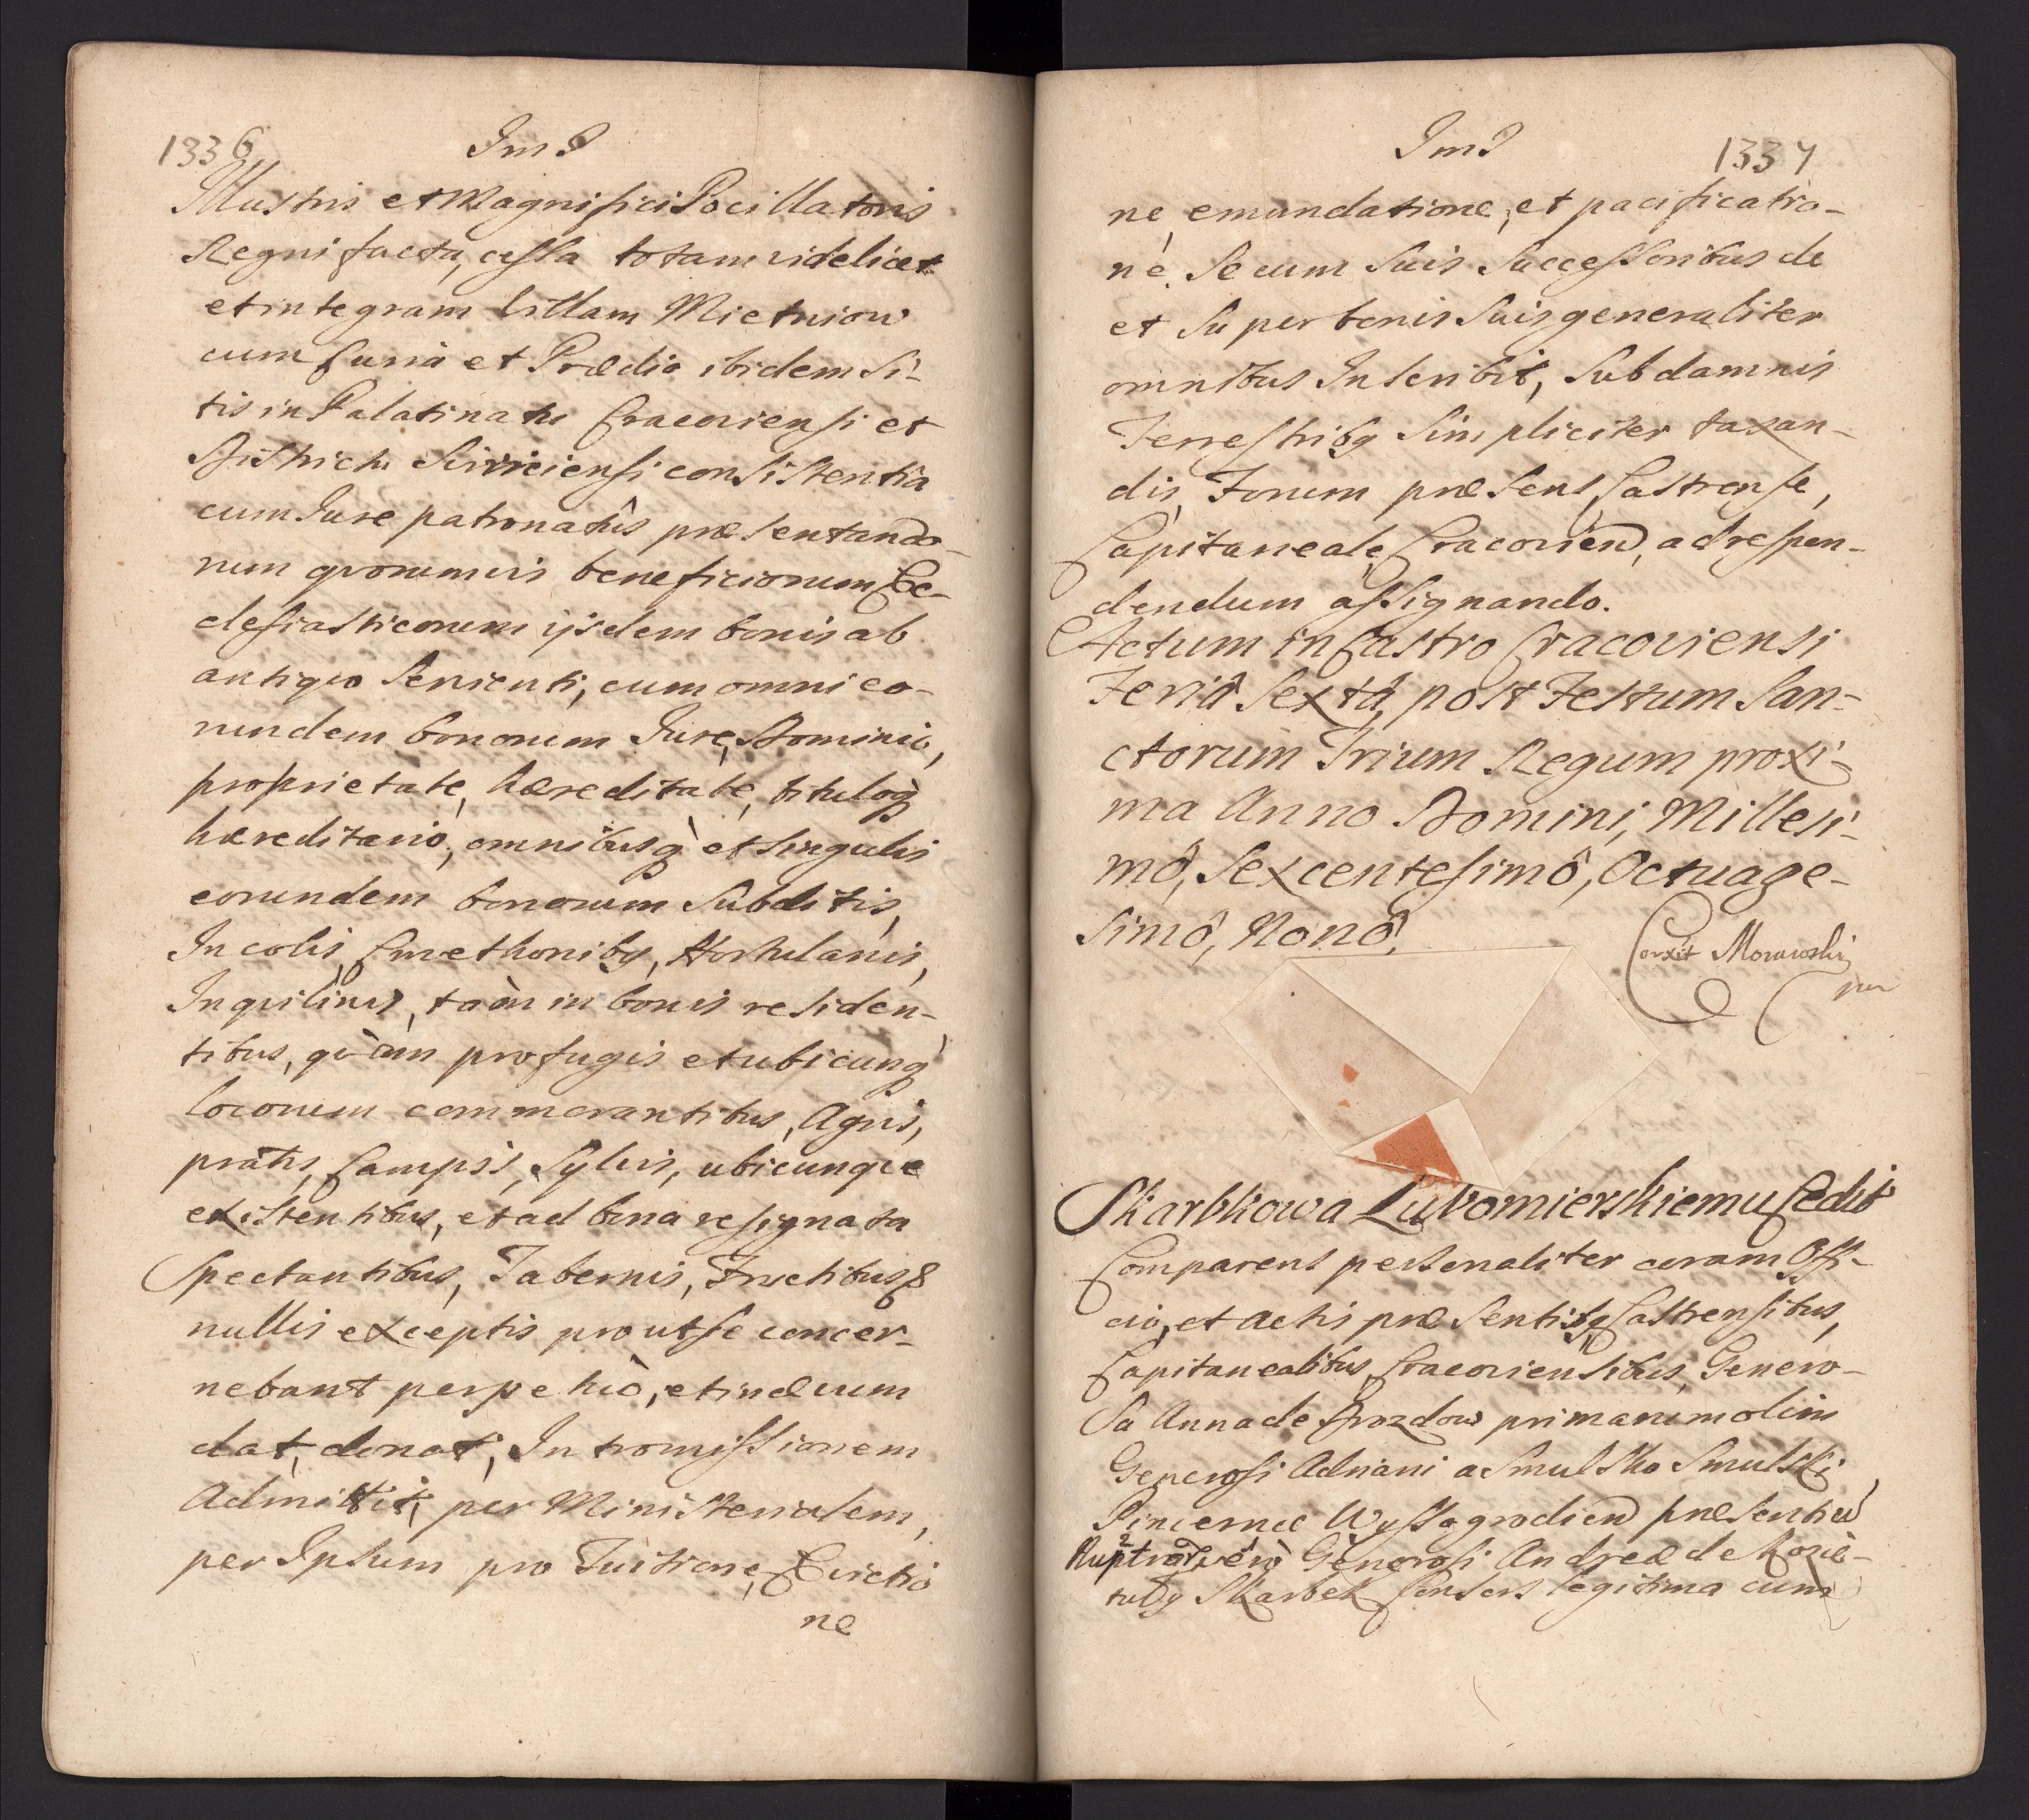 1336
Im J
Illustris et Magnifici Pocillatoris
Regni facta, cessa totam videlicet
et integram Villam Mietniow
cum Curia et Prædio ibidem si-
tis in Palatinatu Cracoviensi et
Districtu Sciriciensi consistentia
cum Jure patronatûs præsentando-
rum quorumvis beneficiorum Ec-
clesiasticorum ijsdem bonis ab
antiquo servienti, cum omni eo-
rundem bonorum Jure, Dominio,
proprietate, hæreditate, tituloq́
hæreditario, omnibusq̀ et singulis
eorundem bonorum Subditis,
Incolis, Cmethonibq, Hortulanis,
Inquilinis, tàm in bonis residen-
tibus, quàm profugis et ubicunq̀
locorum commorantibus, Agris,
pratis, Campis, Sylvis, ubicunque
existentibus, et ad bona resignata
Spectantibus, Tabernis, Fructibusq
nullis exceptis prout se concer-
nebant perpetuò, et in ævum
dat, donat, Intromissionem
Admittit, per Ministerialem,
per Ipsum pro Tuitione, Evictio
ne
Im J
1337
ne, emundatione, et pacificatio-
ne. Se cum Suis Successoribus de
et Super bonis Suis generaliter
omnibus Inscribit, Sub damnis
Terrestribq Simpliciter taxan-
dis, Forum præsens, Castrense,
Capitaneale, Cracovien, ad respon-
dendum assignando.
Actum in Castro Cracoviensi
Feriâ Sextâ, post Festum San-
ctorum Trium Regum proxi-
ma Anno Domini, Millesi-
mô, Sexcentesimô, Octuage-
simô, Nonô.
Corxit Morawski
mp
Skarbkowa Lubomierskiemu Cedit
Comparens personaliter coram Offi-
cio, et Actis præsentibq Castrensibus,
Capitanealibus, Cracoviensibus, Genero-
sa Anna de Drozdow primarum olim
Generosi Adriani a Smulsko Smulski
Pincernæ Wyssogrodien præsentiu
Nuptiar 2 verò Generosi Andreæ de Kozie-
tuly Skarbek Consors legitima cum